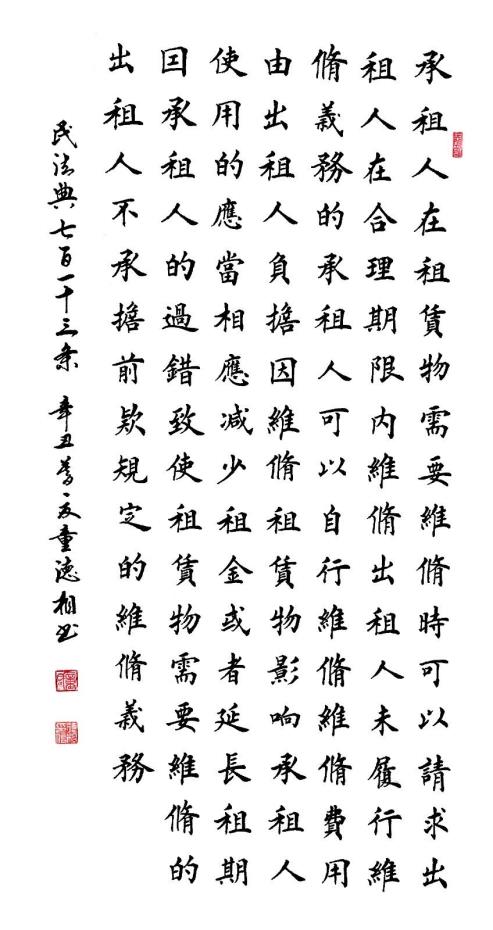 承租人在租賃物需要維脩時可以請求出
租人在合理期限内維脩出租人未履行維
脩義務的承租人可以自行維脩維脩費用
由出租人負擔因維脩租賃物影响承租人
使用的應當相應减少租金或者延長租期
囙承租人的過錯致使租賃物需要維脩的
出租人不承擔前欵規定的維脩義務
民法典七百一十三条 辛丑暮夏童德相书